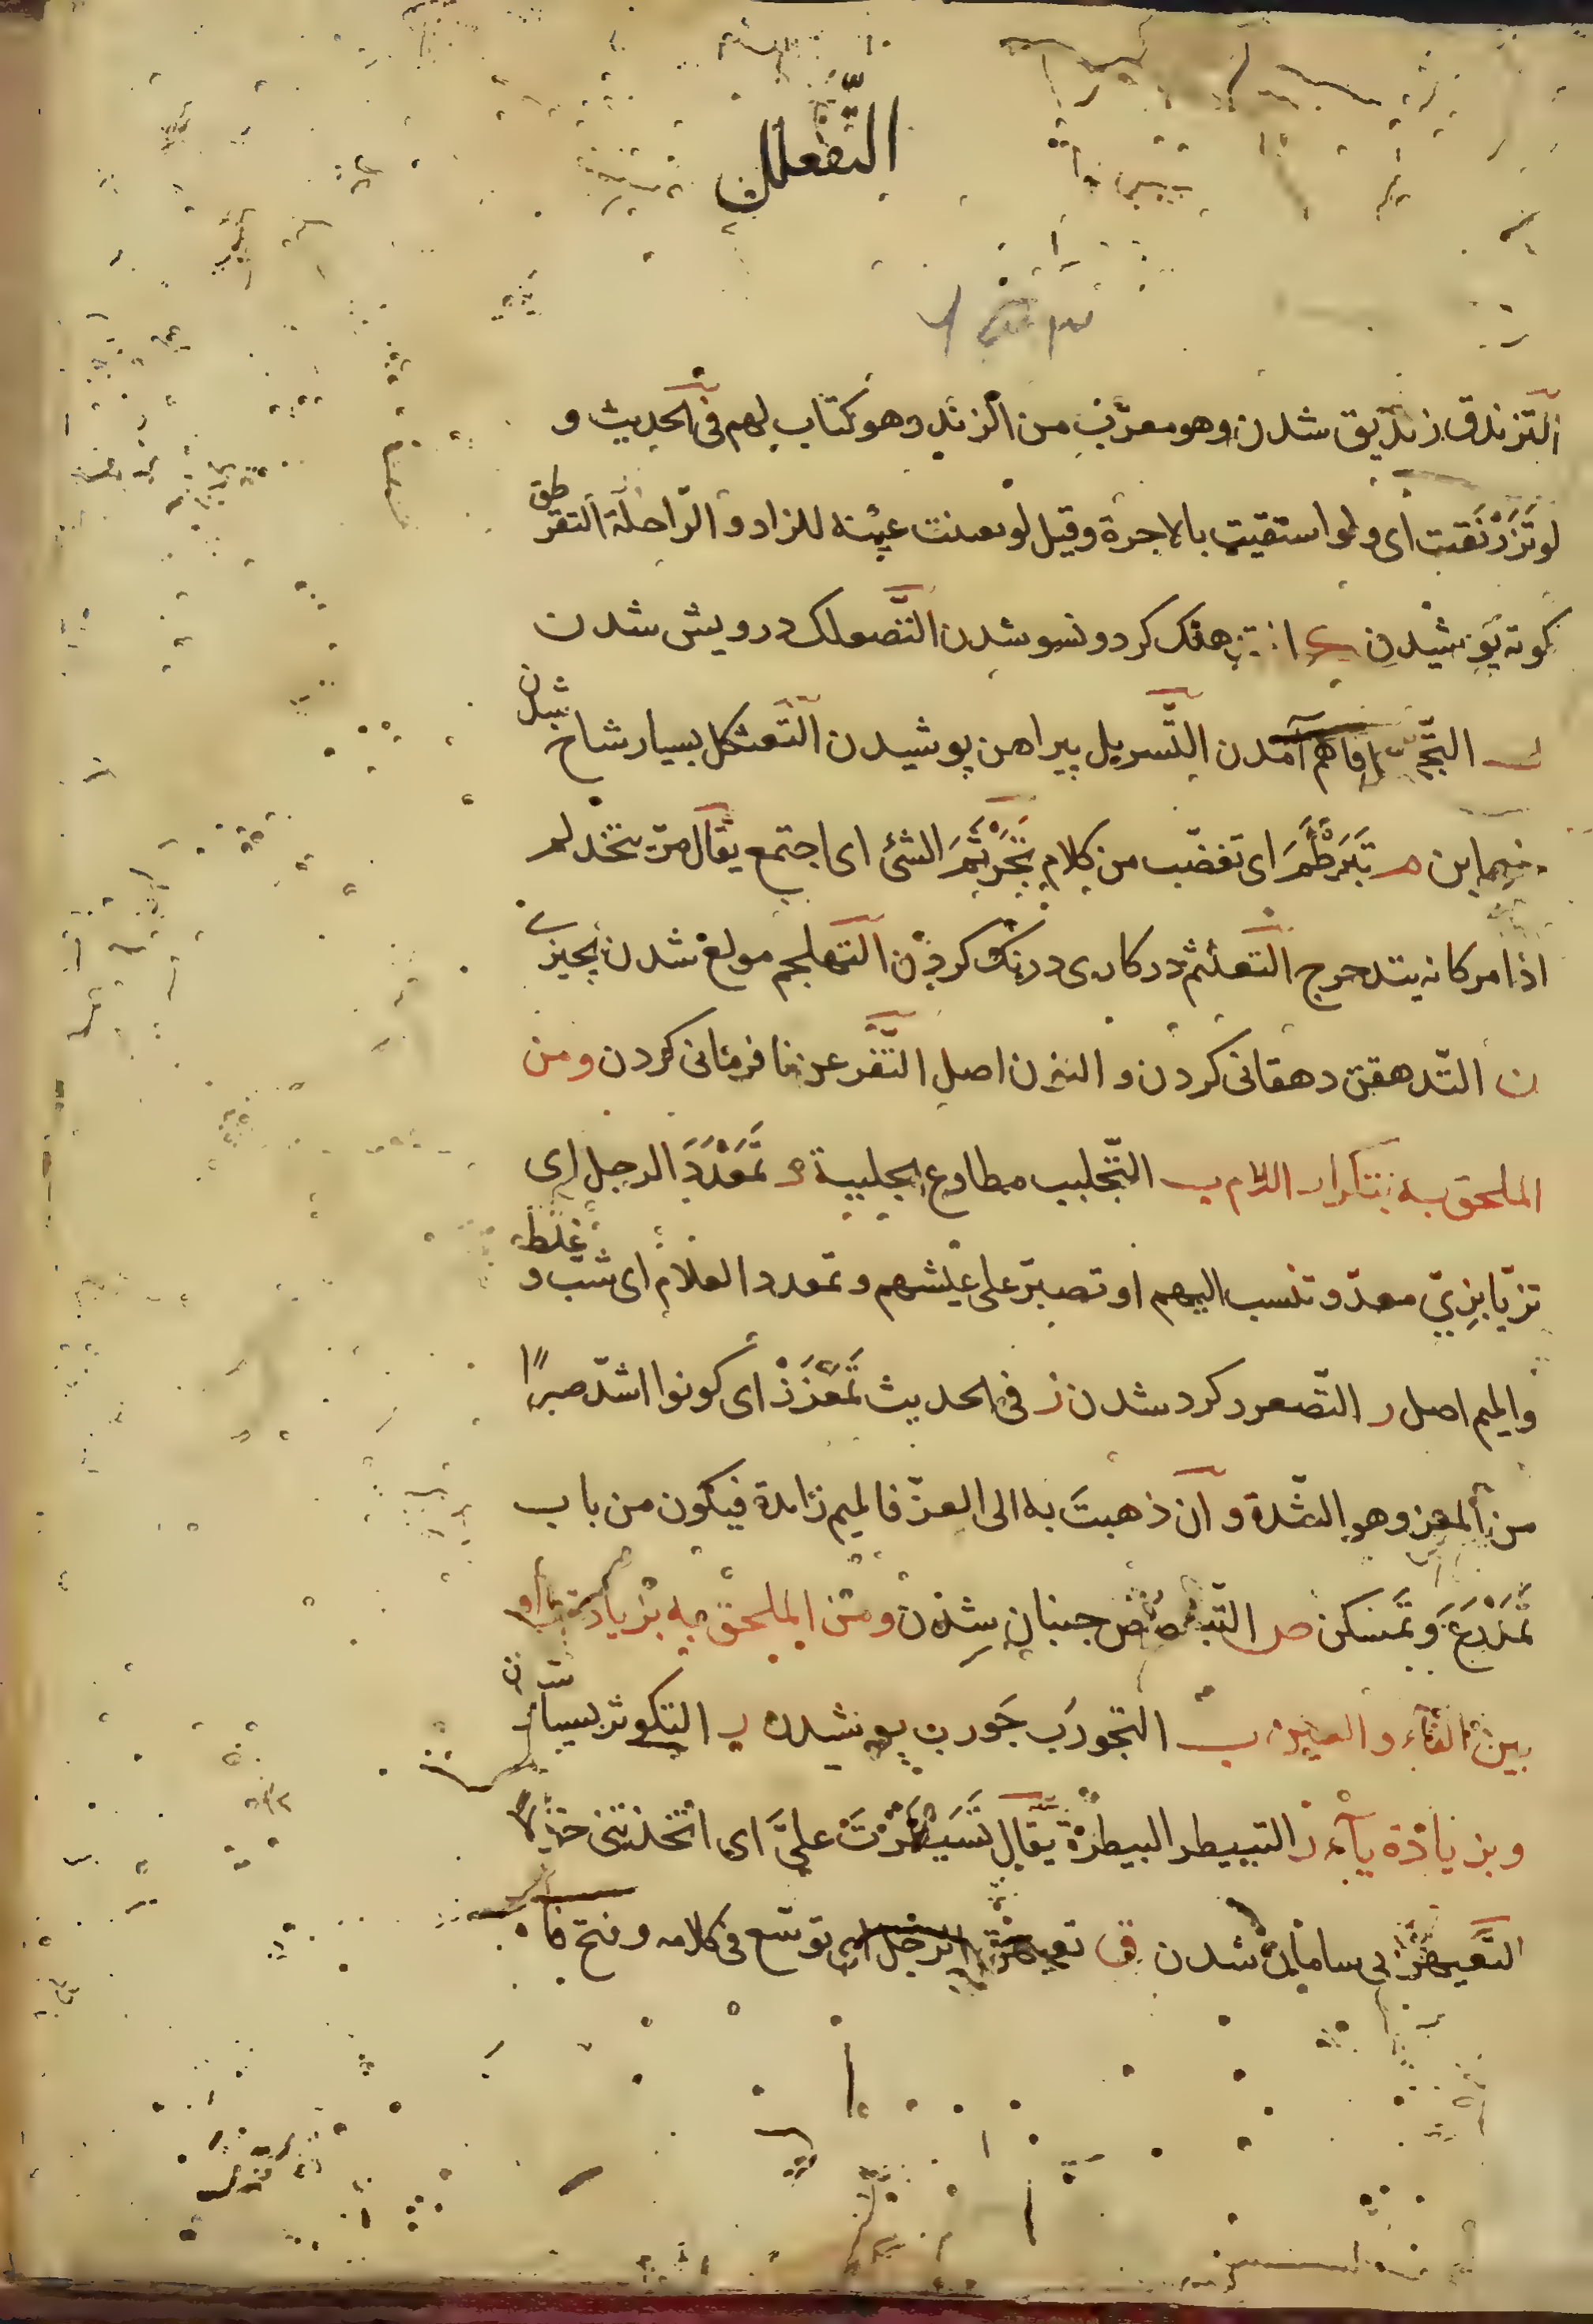 التفعلل
التّزندق زندیق شدن وهو معرّب من الزند وهو كتاب لهم فی الحدیث و
لو تَزَرْنَقت ای ولو استقیت بالاجرة وقیل لو عینه للزاد و الرّاحلة التقرطق
كوته پوشیدن شدن التّصعلك درویش شدن
فاهم آمدن التّسربل پیراهن پوشیدن التّعثكل بسیار شاخ شدن
م تَبَرْطَمَ ای تغضّب من كلام تَجَرْثَمَ الشئ ای اجتمع یقال مرّ یتخدلم
اذا مر كانه یتدحرج التّعثم در كاری درنك كردن التّهلجم مولع شدن بچیزی
ن التّدهقن دهقانی كردن و النون اصل التّفرعن نافرمانی كردن ومن
الملحق به بتكرار اللام ب التّجلبب مطاوع الجلببة د تَمَعْدَدَ الرجل ای
تزیّا بزیّ معدّ و تنسب الیهم او تصبّر علی عیشهم و تمعدد الغلام ای شبّ و غلظ
والمیم اصل ر التّصعرر كرد شدن ز فی الحدیث تَمَعْزَزْ ای كونوا اشدّ صبرًا
من المعز وهو الشّدة و ان ذهبتَ به الی العزّ فالمیم زائدة فیكون من باب
تَمَدْرَعَ وَ تَمَسْكَنَ ص جنبان شدن ومن الملحق به بزیادة واو
بین الفاء و العین ب التجورَب جَورب پوشیدن ر التكوثر بسیار شدن
و بزیادة یاء ر التبیطر البیطرة یقال تَسَیْطَرْتَ علیّ ای اتّخذتنی
بی سامان شدن ق الرجل ای توسّع فی كلامه و فتح فاه